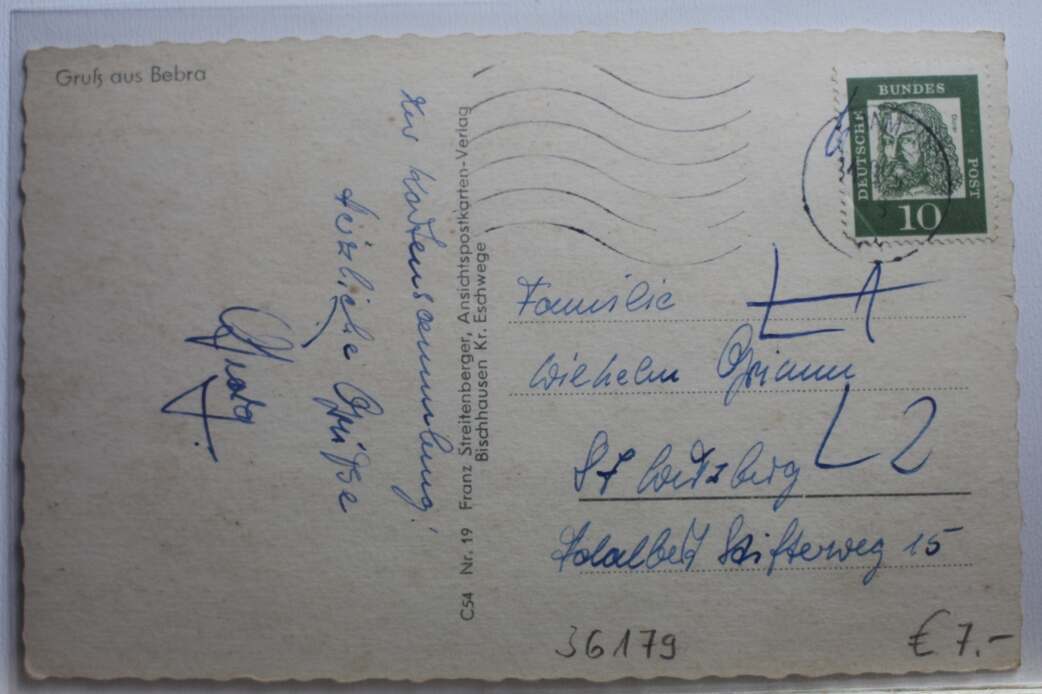 Gruß aus Bebra
Kartensammlung!
Herzliche Grüße
C54 Nr. 19 Franz Streitenberger, Ansichtspostkarten-Verlag
Bischhausen Kr. Eschwege
DEUTSCHE
BUNDES
POST
Dürer
10
Familie
L1
Wilhelm Grimm
L2
Adalbert Stifterweg 15
36179
€ 7.-